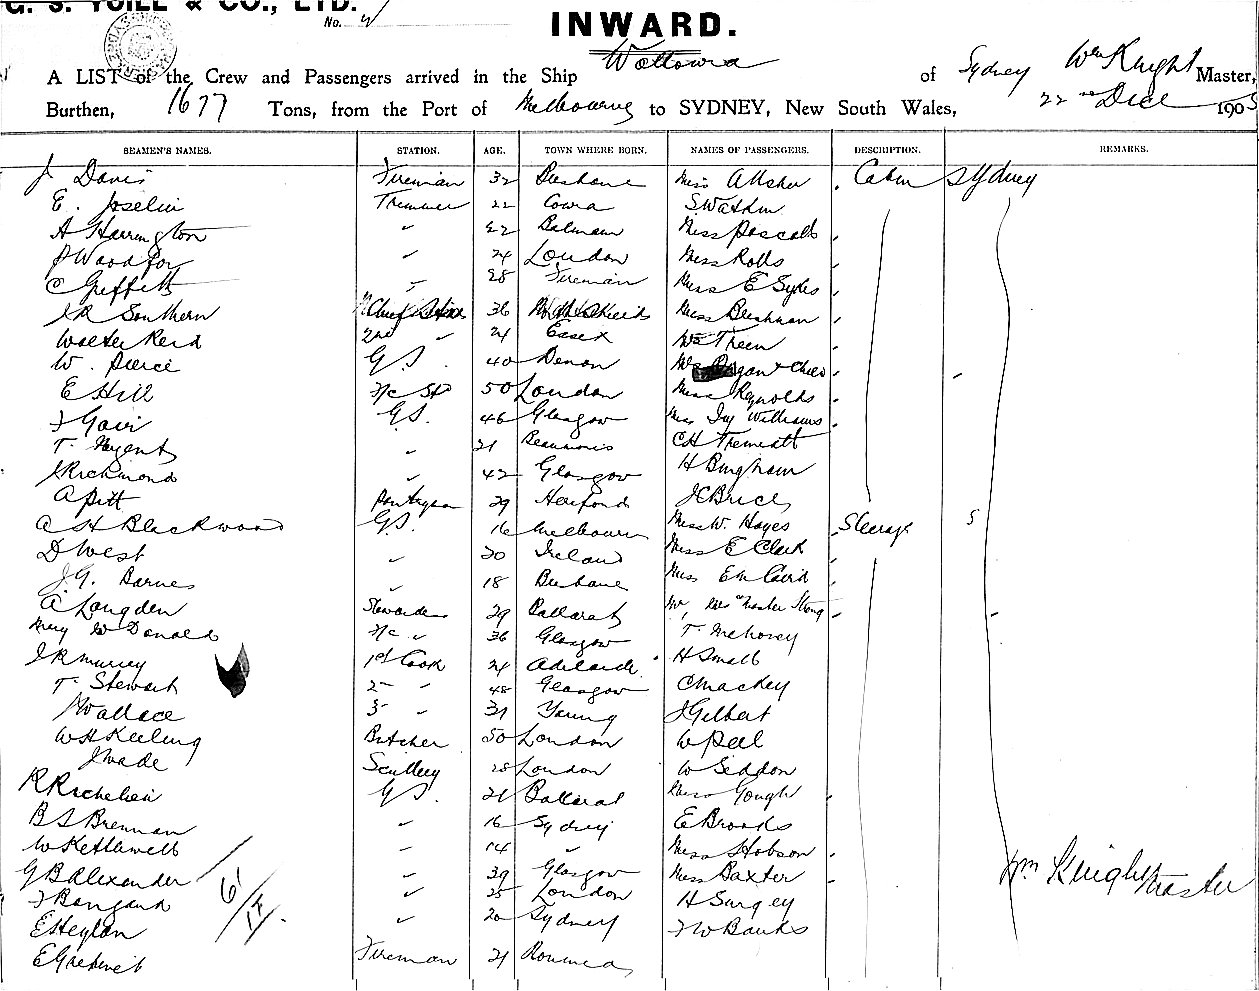 G. S. YUILL & CO., LTD.
No.
INWARD.
A LIST of the Crew and Passengers arrived in the Ship Wollowra of Sydney Wm Knight Master,
Burthen, 1677 Tons, from the Port of Melbourne to SYDNEY, New South Wales, 22nd Dece 1905
SEAMEN'S NAMES. STATION. AGE. TOWN WHERE BORN. NAMES OF PASSENGERS. DESCRIPTION. REMARKS.
J Davis Fireman 32 Brisbane Miss Cabin Sydney
E. Joselin Trimmer 22 Cowra
A Harrington " 22 Balmain Miss
" 24 London Miss Rolls
C Griffith " 28 Fireman Miss E Sykes
J R Southern 36 Miss Bushman
Walter Reid 2nd " 24 Essex
W. Pierce G.S. 40 Devon
E Hill F/c St 50 London Miss Reynolds
J Gair G.S. 46 Glasgow Miss Ivy Williams
T. Nugent " 21
J Richmond " 42 Glasgow H Bingham
A Pitt Pantryman 29 Hereford J C Brice
C H Blackwood G.S. 16 Melbourne Miss W. Hayes Steerage 5
D West " 20 Ireland Miss E Clark
J. G. Barnes " 18 Brisbane Miss
A Langden Stewardess 29 Ballarat Mr, Mrs & Master Strong
Mary McDonald F/c " 36 Glasgow T.
J R Murray 1st Cook 24 Adelaide H Small
T. Stewart 2 " 48 Glasgow C Mackey
J Wallace 3 " 31 Young J Gilbert
W H Keeling Butcher 50 London W Peel
J Wade Scullery 28 London W Seddon
R Richelieu G.S. 21 Ballarat Miss Gough
B S Brennan " 16 Sydney E Brooks
W Kethlewell " 14 " Miss Hobson
G B Alexander " 39 Glasgow Miss Baxter Wm Knight Master
" 25 London H Surgey
E Heylan " 20 Sydney F W Banks
Fireman 21
61/17